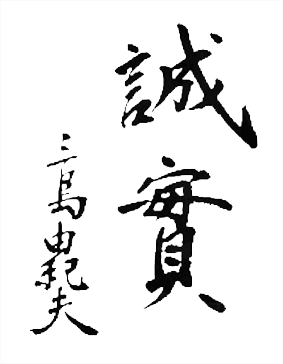 誠實
三島由紀夫